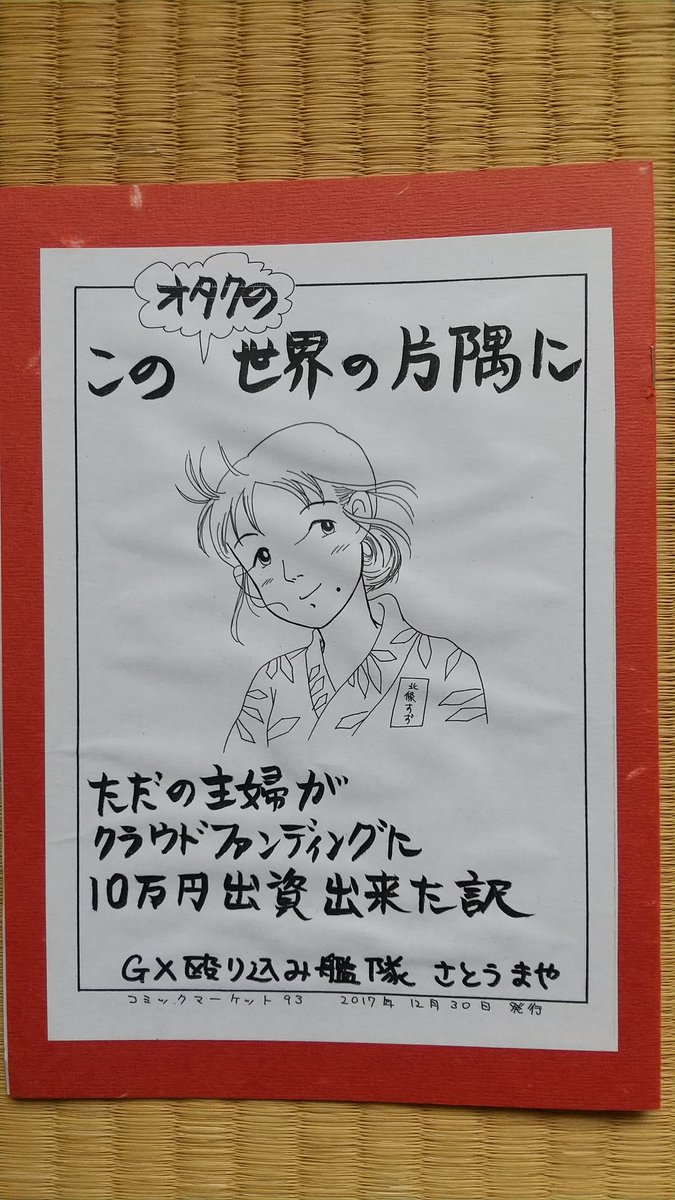 オタクの
この 世界の片隅に
北條すず
ただの主婦が
クラウドファンディングに
10万円出資出来た訳
GX殴り込み艦隊 さとうまや
コミックマーケット93 2017年12月30日 発行